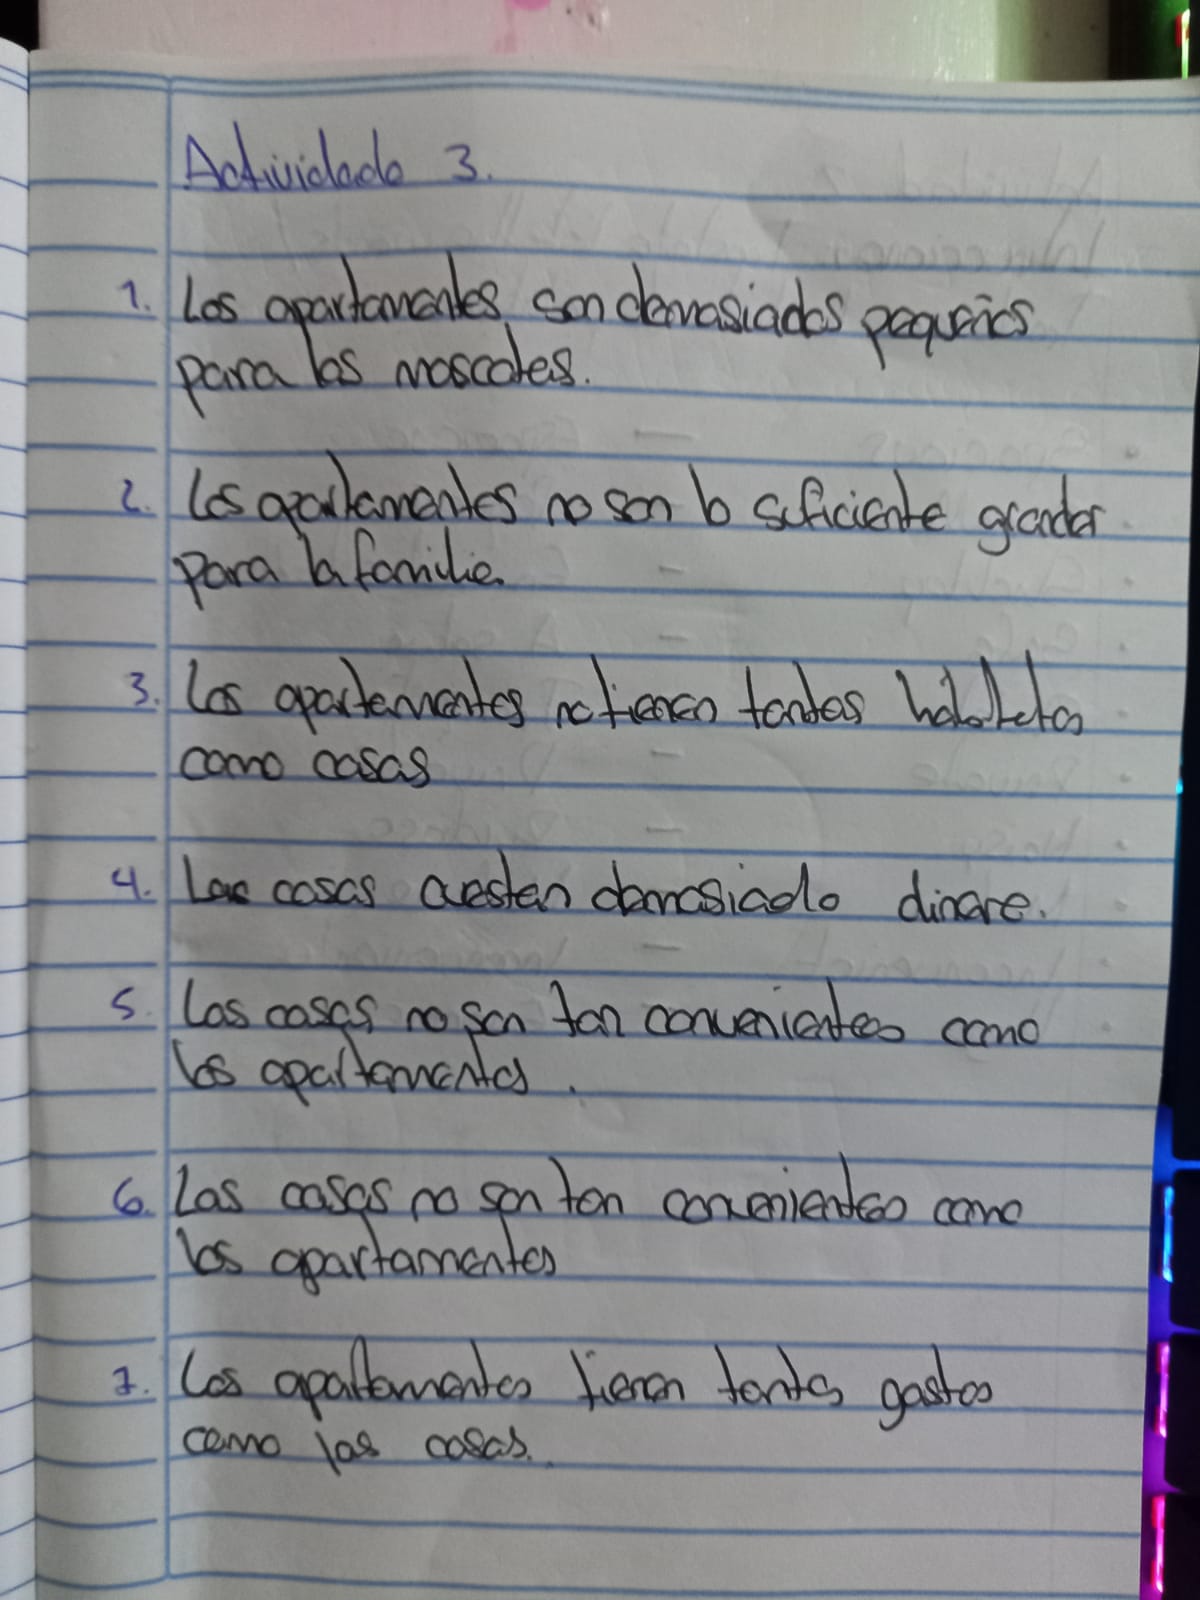 Actividado 3.
1. Los apartamentes, son demasiados pequeños
para los mascotes.
2. Los apartamentes no son lo suficiente grandes
para la familia.
3. Los apartementos no tienen tantos
como casas
4. Las casas cuestan demasiado dinare.
5. Las casas no son tan convenientes como
los apartamentos.
6. Las casas no son tan convenientes como
los apartamentos
7. Los apartamentos tienen tantos gastos
como las casas.